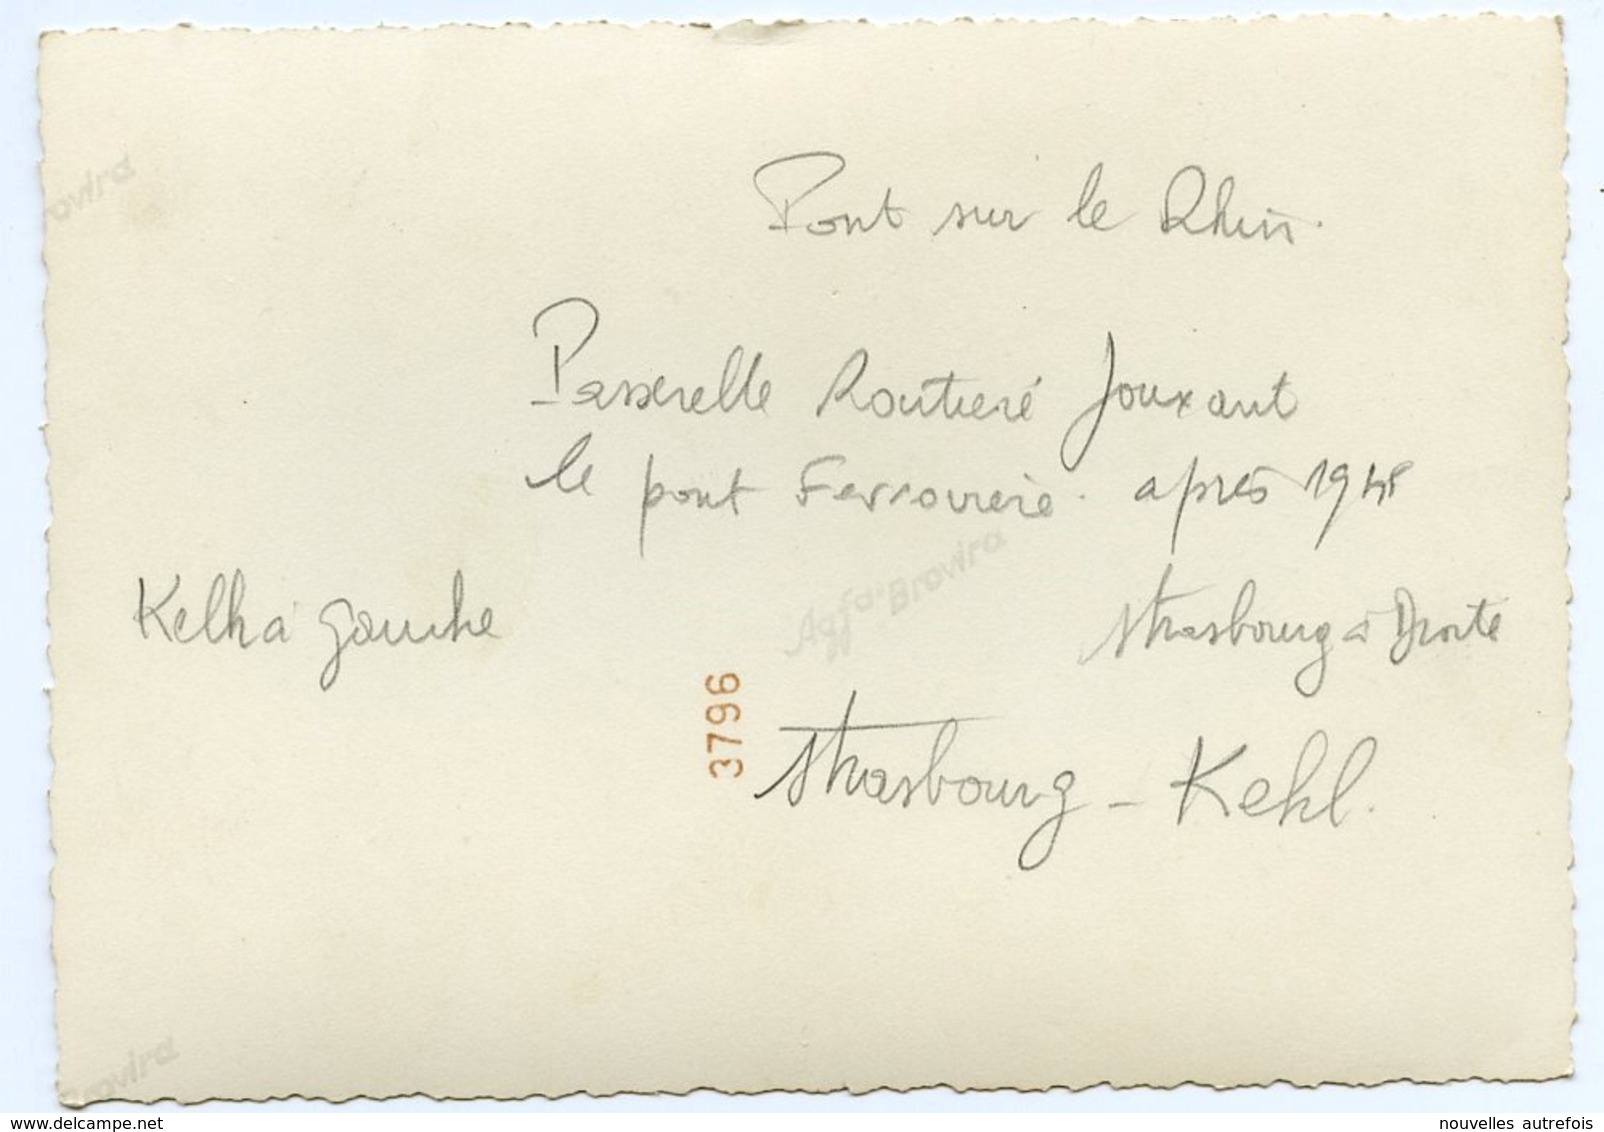 Pont sur le Rhin.
Passerelle Routiere Jouxant
le pont Ferroviere. après 1945
Kelh à gauche
Strasbourg à Droite
3796
Strasbourg - Kehl.
ovira
Agfa-Brovira
Brovira
www.delcampe.net
nouvelles autrefois